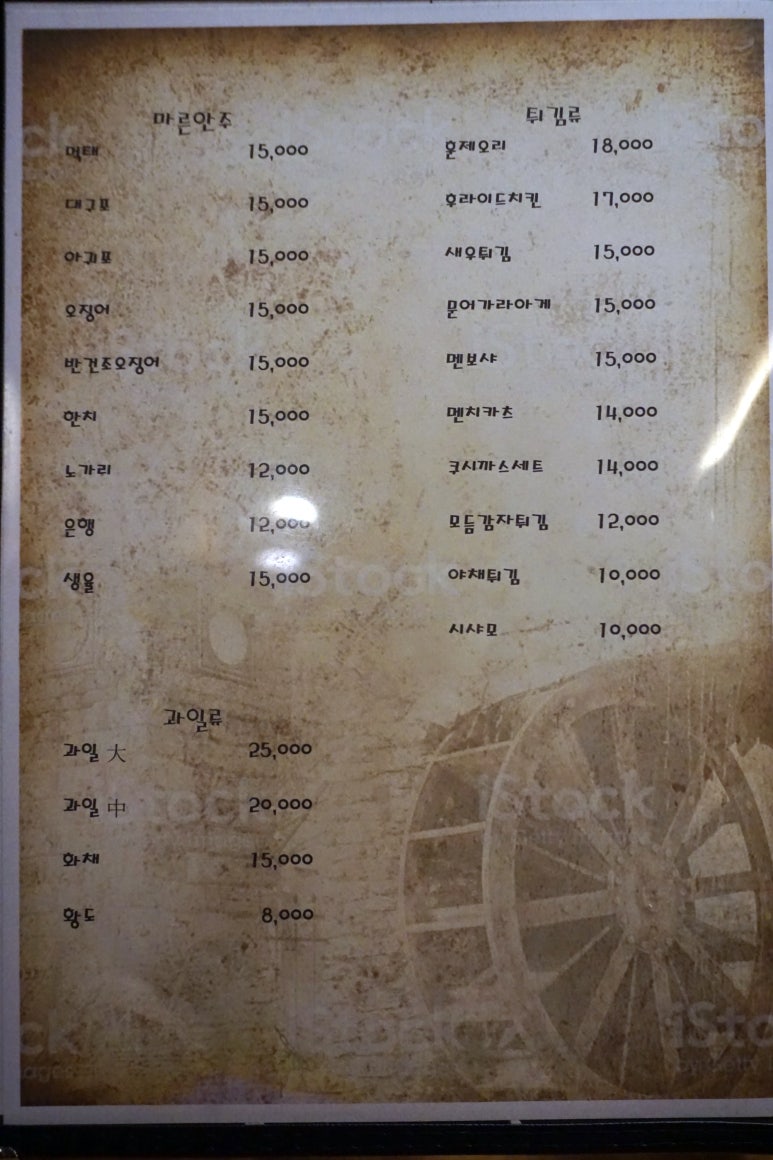 마른안주
먹태 15,000
대구포 15,000
아귀포 15,000
오징어 15,000
반건조오징어 15,000
한치 15,000
노가리 12,000
은행 12,000
생율 15,000
과일류
과일 大 25,000
과일 中 20,000
화채 15,000
황도 8,000
튀김류
훈제오리 18,000
후라이드치킨 17,000
새우튀김 15,000
문어가라아게 15,000
멘보샤 15,000
멘치카츠 14,000
쿠시까스세트 14,000
모듬감자튀김 12,000
야채튀김 10,000
시샤모 10,000
iStock
iStock